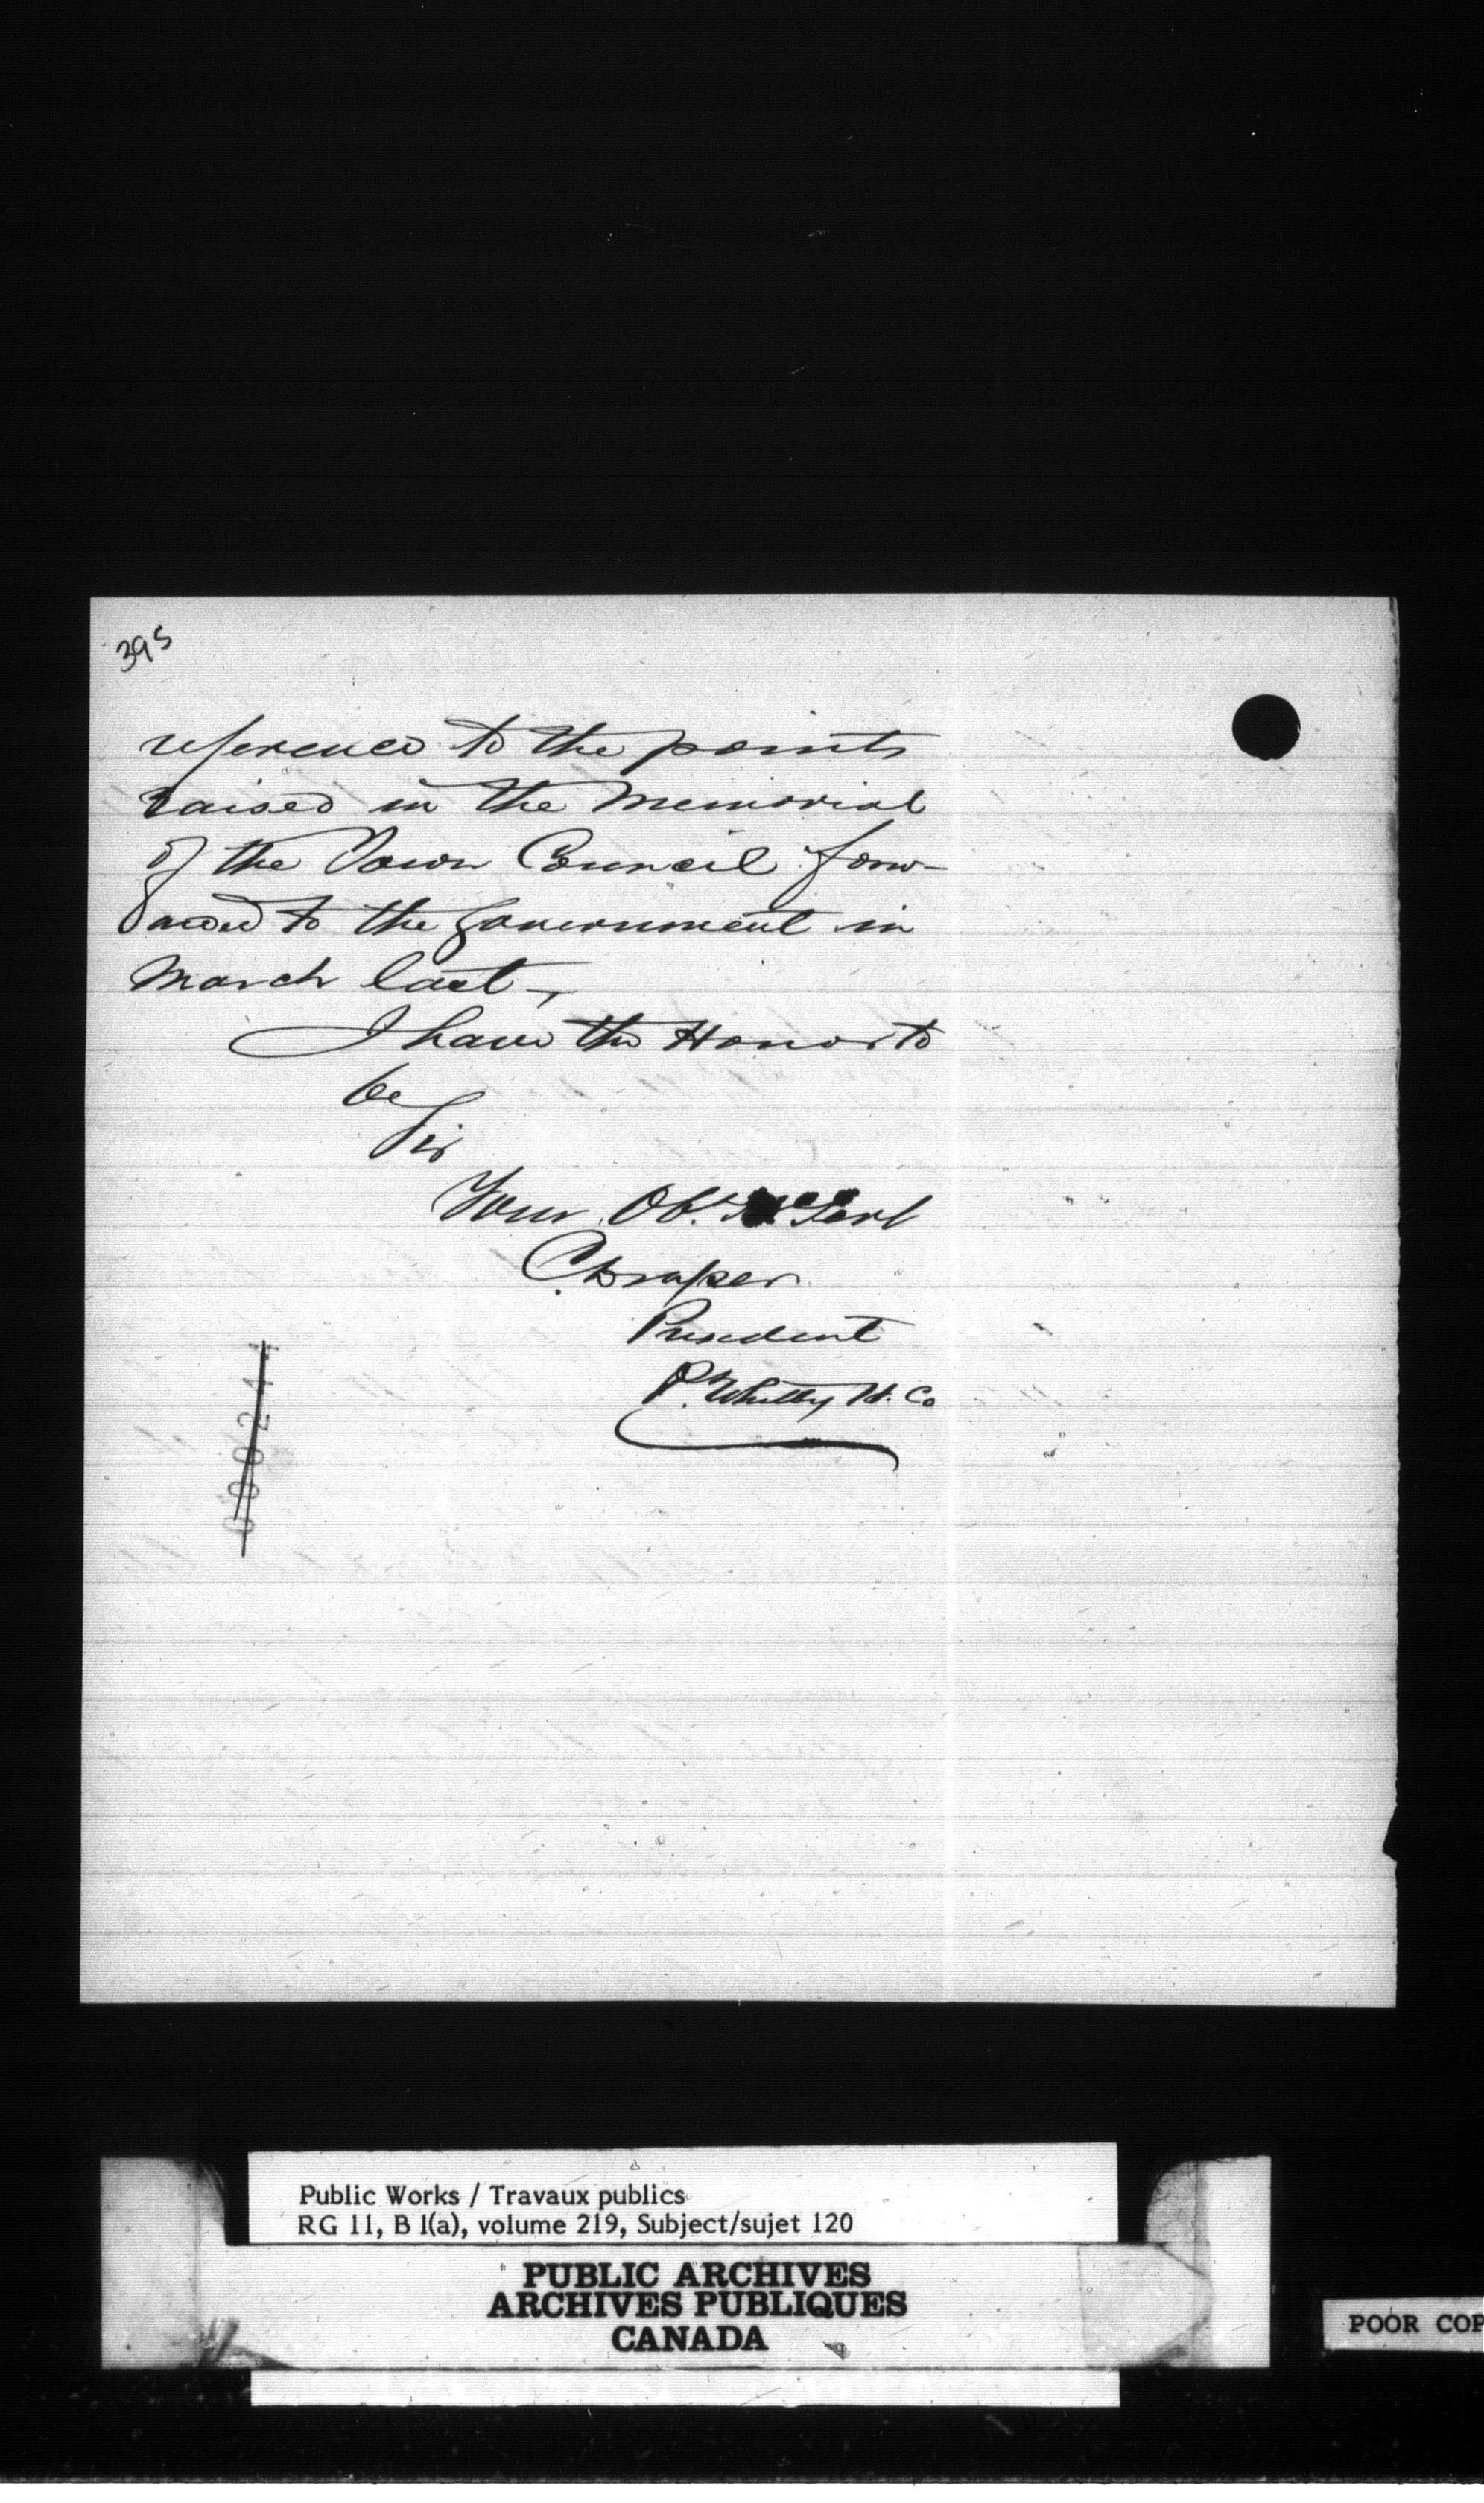 395
reference to the points
raised in the Memorial
of the Town Council forw-
arded to the Government in
March last,
I have the Honor to
be
Sir
Your Obt. Servt
C Draper
President
P. Whitby H. Co
000244
Public Works / Travaux publics
RG 11, B 1(a), volume 219, Subject/sujet 120
PUBLIC ARCHIVES
ARCHIVES PUBLIQUES
CANADA
POOR COP